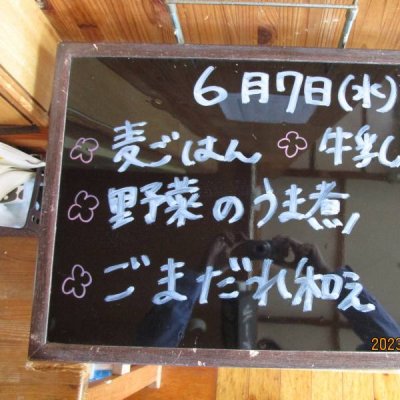 6月7日(水)
麦ごはん 牛乳
野菜のうま煮
ごまだれ和え
2023